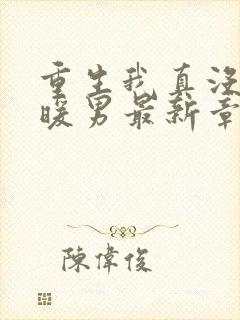 重生我真没
暖男最新章
陳偉俊